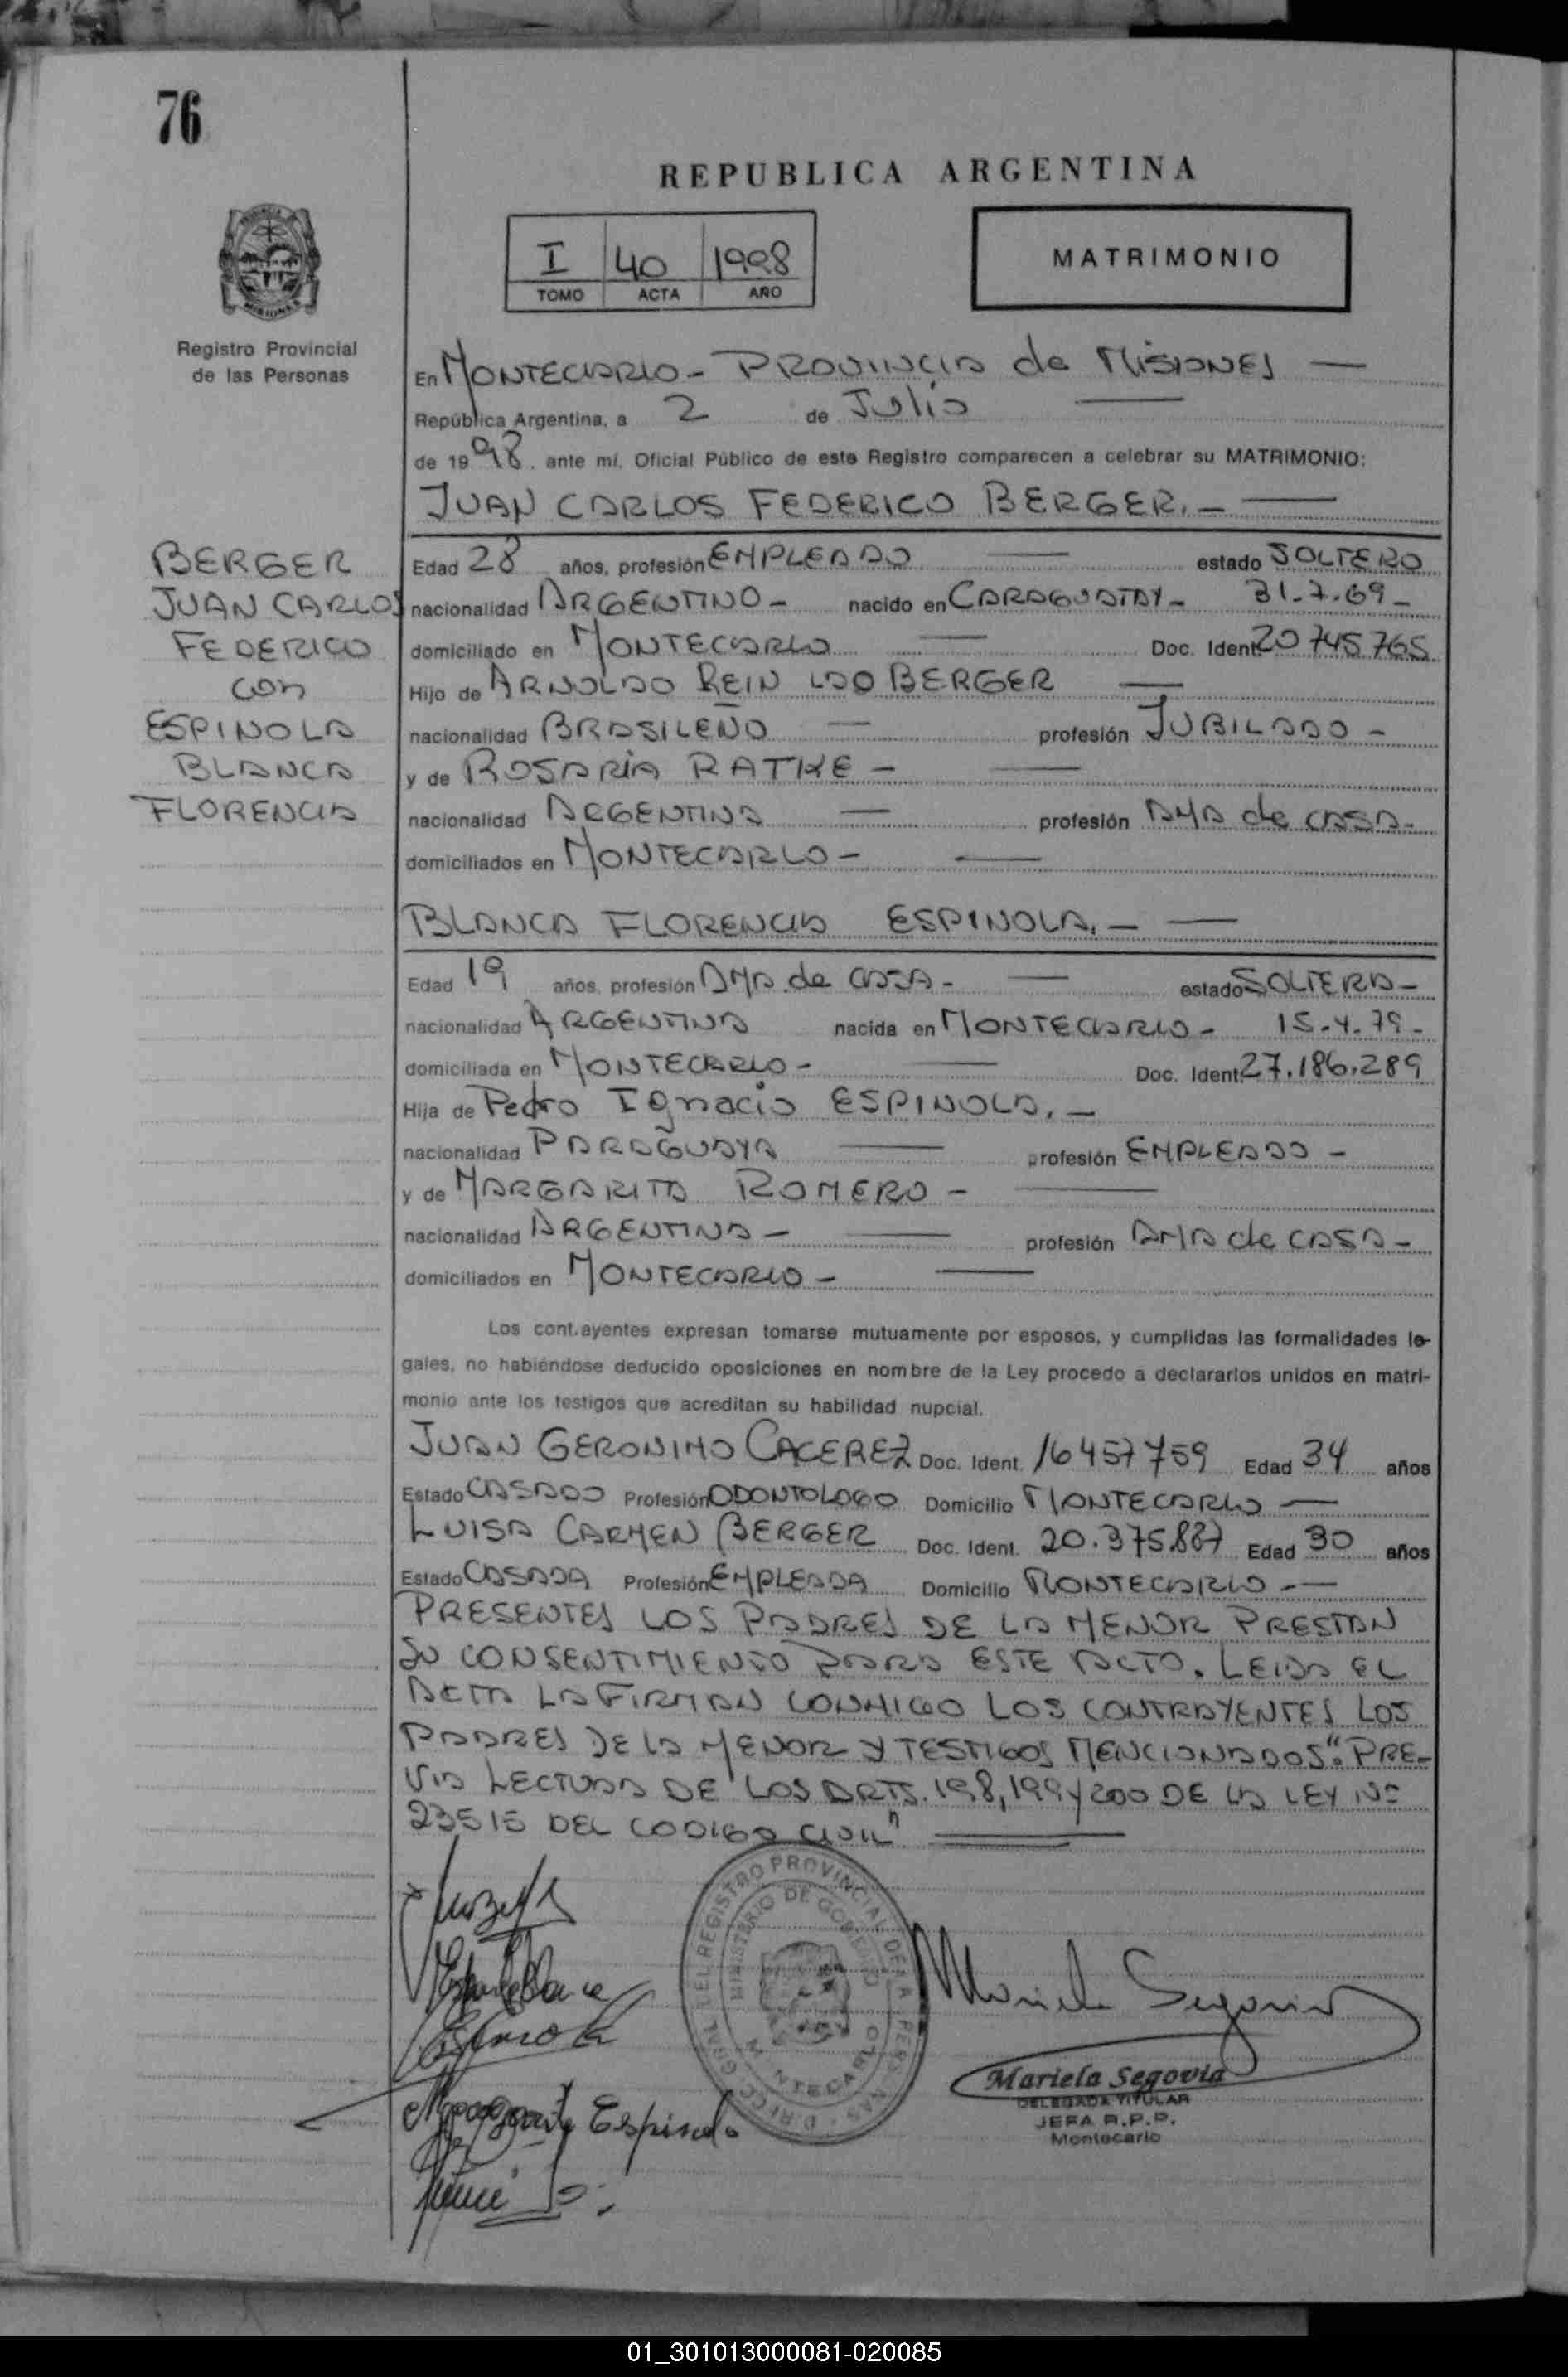 76
REPUBLICA ARGENTINA
I 40 1998
TOMO ACTA AÑO
MATRIMONIO
Registro Provincial
de las Personas
En MONTECARLO - PROVINCIA de MISIONES —
República Argentina, a 2 de Julio —
de 19 98. ante mí. Oficial Público de este Registro comparecen a celebrar su MATRIMONIO:
JUAN CARLOS FEDERICO BERGER. —
BERGER
JUAN CARLOS
FEDERICO
con
ESPINOLA
BLANCA
FLORENCIA
Edad 28 años, profesión EMPLEADO — estado SOLTERO
nacionalidad ARGENTINO - nacido en CARAGUATAY - 31.7.69 -
domiciliado en MONTECARLO — Doc. Ident. 20 745 765
Hijo de ARNOLDO REIN LDO BERGER —
nacionalidad BRASILEÑO — profesión JUBILADO -
y de ROSARIA RATHE - —
nacionalidad ARGENTINA — profesión AMA de CASA -
domiciliados en MONTECARLO - —
BLANCA FLORENCIA ESPINOLA. - —
Edad 19 años. profesión AMA de CASA - — estado SOLTERA -
nacionalidad ARGENTINA nacida en MONTECARLO - 15-4-79 -
domiciliada en MONTECARLO - — Doc. Ident. 27.186.289
Hija de Pedro Ignacio ESPINOLA. -
nacionalidad PARAGUAYA — profesión EMPLEADO -
y de MARGARITA ROMERO - —
nacionalidad ARGENTINA - — profesión AMA de CASA -
domiciliados en MONTECARLO - —
Los cont.ayentes expresan tomarse mutuamente por esposos, y cumplidas las formalidades le-
gales, no habiéndose deducido oposiciones en nombre de la Ley procedo a declararlos unidos en matri-
monio ante los testigos que acreditan su habilidad nupcial.
JUAN GERONIMO CACEREZ Doc. Ident. 16 457 759 Edad 34 años
Estado CASADO Profesión ODONTOLOGO Domicilio MONTECARLO —
LUISA CARMEN BERGER Doc. Ident. 20.375.887 Edad 30 años
Estado CASADA Profesión EMPLEADA Domicilio MONTECARLO - —
PRESENTES LOS PADRES DE LA MENOR PRESTAN
SU CONSENTIMIENTO PARA ESTE ACTO. LEIDA EL
ACTA LA FIRMAN CONMIGO LOS CONTRAYENTES LOS
PADRES DE LA MENOR Y TESTIGOS MENCIONADOS". PRE-
VIA LECTURA DE LOS ARTS. 198, 199 y 200 DE LA LEY Nº
23515 DEL CODIGO CIVIL"
DIRECC. GRAL. DEL REGISTRO PROVINCIAL DE LA PERSONAS
MINISTERIO DE GOBIERNO
MONTECARLO
Mariela Segovia
Espinola
Espinola
Mariela Segovia
DELEGADA TITULAR
JEFA R.P.P.
Montecarlo
01_301013000081-020085